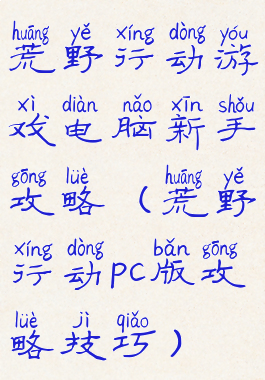 huāng yě xíng dòng yóu
荒野行动游
xì diàn nǎo xīn shǒu
戏电脑新手
gōng lüè huāng yě
攻略（荒野
xíng dòng bǎn gōng
行动PC版攻
lüè jì qiǎo
略技巧）